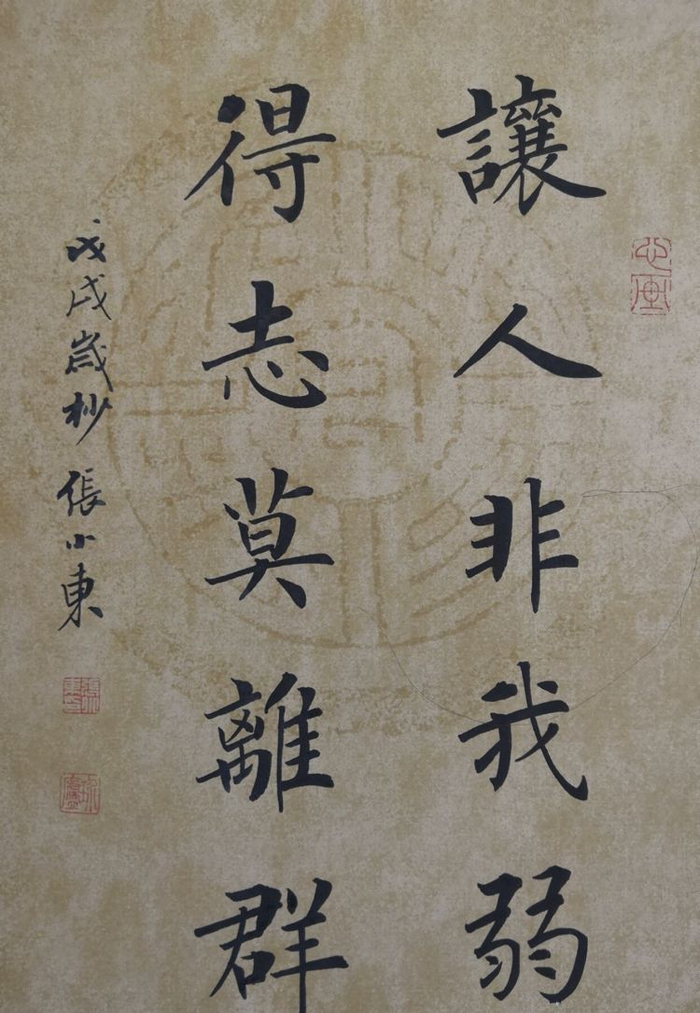 讓人非我弱
得志莫離群
戊戌歲杪 張小東